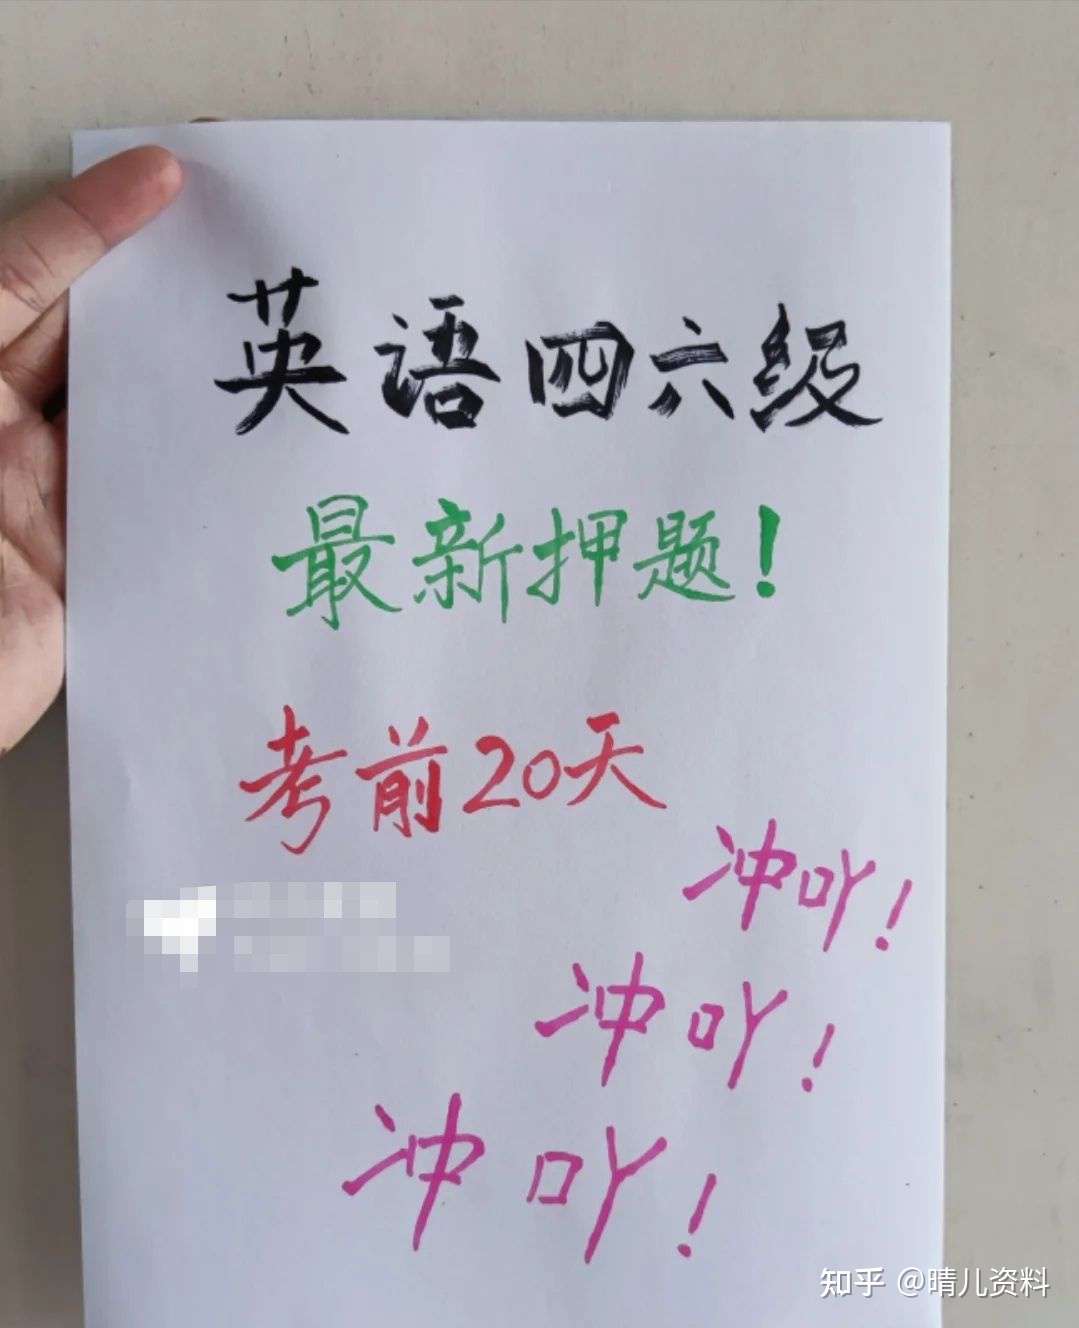 英语四六级
最新押题!
考前20天
冲吖!
冲吖!
冲吖!
知乎 @晴儿资料